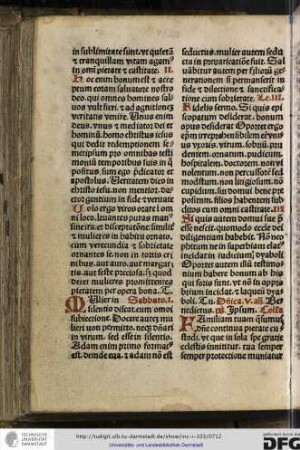 in sublimitate sunt. vt quietā
& tranquillam vitam agam⁹
in om̄i pietate & castitate. II.
Hoc enim bonum est & acce
ptum cotam saluatore nostro
deo. qui omnes homines sal
uos vult fieri. & ad agnitionē
veritatis venire. Vnus enim
deus. vnus & mediator dei et
hominū. homo christus iesus
qui dedit redemptionem se
metipsum pro omnibus testi
monium temporibus suis in q̄
positus sum ego p̄dicator et
apostolus. Veritatem dico in
christo iesu. non mentior. do
ctor gentium in fide & veritate
Volo ergo viros orare i om
ni loco. leuantes puras man⁹
sine ira. et disceptatōne. similit̄
& mulieres in habitu ornato.
cum verecundia & sobrietate
ornantes se. non in tortis cri
nibus. aut auro. aut margari
tis. aut veste preciosa. s; quod
decet mulieres promittentes
pietatem per opera bona. T.
Mulier in Sabbato. I.
silentio discat. cum omni
subiectione. Docere autē mu
lieri non permitto. neq; dn̄ari
in virum. sed esse in silentio.
Adam enim primo formatꝰ
est. deinde eua. & adam nō est
seductus. mulier autem sedu
cta in preuaricatiōe fuit. Sal
uabitur autem per filiorū ge
nerationem si permanserit in
fide & dilectione & sanctifica
tione cum sobrietate. Le. III.
Fidelis sermo. Si quis epi
scopatum desiderat. bonum
opus desiderat Oportet ergo
ep̄m irreprehensibilem eē vni
us vxoris. virum. sobriū. pru
dentem. ornatum. pudicum.
hospitalem. doctorem. non vi
nolentum. non percussorē sed
modestum. non litigiosum. nō
cupidum. sue domui bene pre
positum. filios habentem sub
ditos cum omni castitate. III
Si quis autem domui sue p̄
esse nescit. quomodo eccle dei
diligentiam habebit. Nō neo
phitum ne in superbiam elat⁹
incidat in iudicium dyaboli
Oportet autem illū testimo
nium habere bonum ab his
qui foris sunt. vt nō in oppro
brium incidat. & laqueū dya
boli. Tu. Dn̄ica. V. añ. Be
nedictus. Ipsum. Collā
Familiam tuam q̄sumus
dn̄e continua pietate cu
stodi. vt que in sola spe gratie
celestis innititur. tua semper
semper protectione muniatur
TECHNISCHE
UNIVERSITÄT
DARMSTADT
http://tudigit.ulb.tu-darmstadt.de/show/inc-iv-303/0712
Universitäts- und Landesbibliothek Darmstadt
DFG